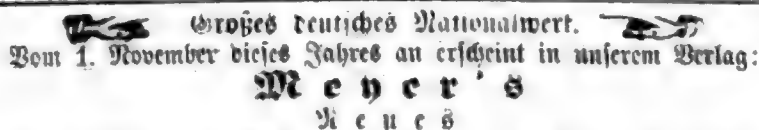 Großes deutsches Nationalwerk.
Vom 1. November dieses Jahres an erscheint in unserem Verlag:
Meyer's
Neues